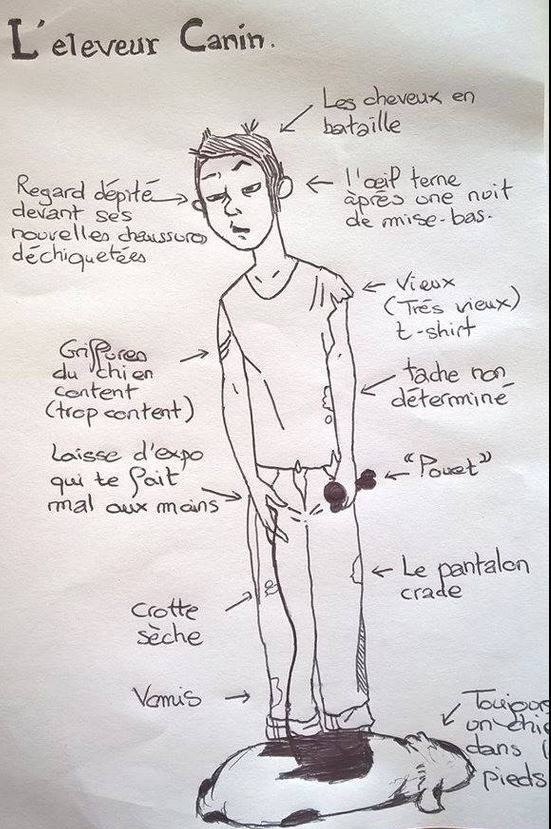 L'eleveur Canin.
Les cheveux en
bataille
Regard dépité
devant ses
nouvelles chaussures
déchiquetées
l'œil terne
après une nuit
de mise-bas.
Vieux
(Très vieux)
t-shirt
Griffures
du chien
content
(trop content)
tache non
déterminé
Laisse d'expo
qui te fait
mal aux mains
"Pouet"
Le pantalon
crade
Crotte
sèche
Vomis
Toujours
un chie
dans
pieds